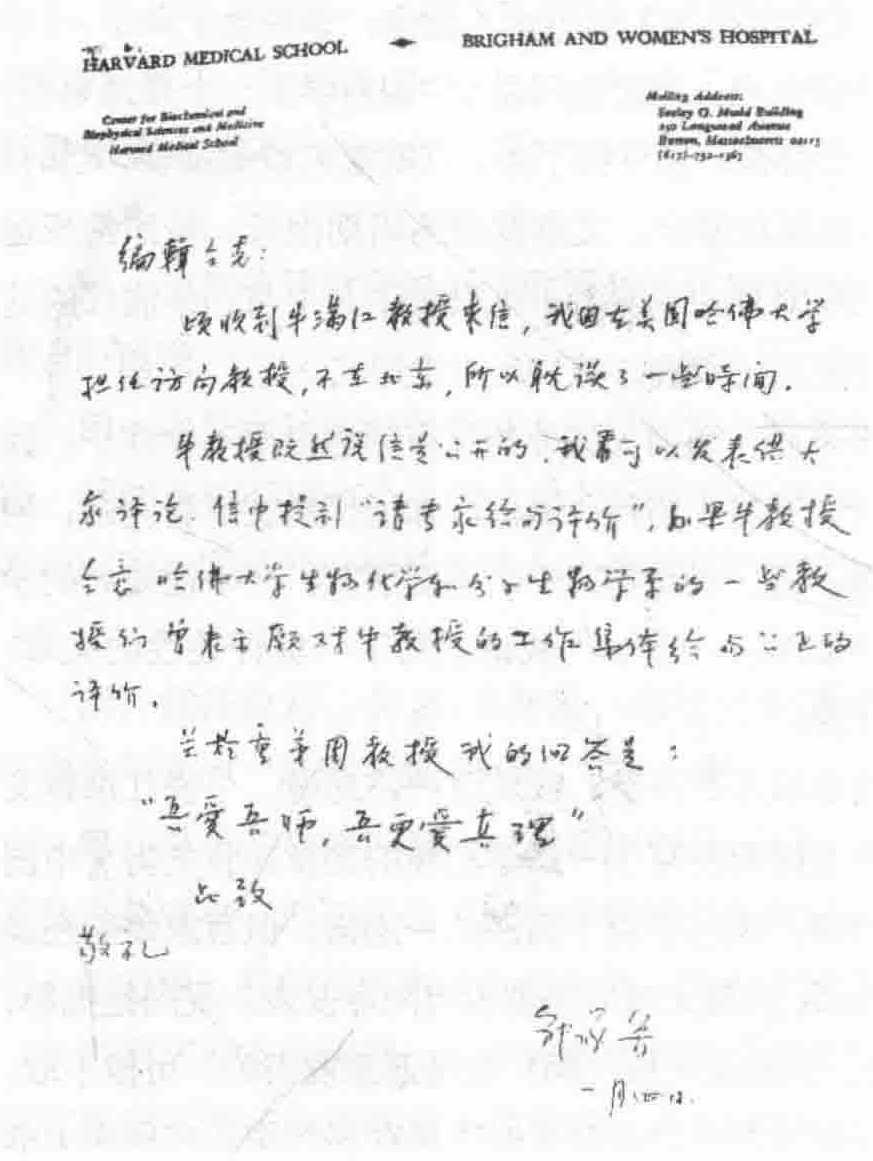 HARVARD MEDICAL SCHOOL
BRIGHAM AND WOMEN'S HOSPITAL
Center for Biochemical and
Biophysical Sciences and Medicine
Harvard Medical School
Mailing Address:
Seeley G. Mudd Building
250 Longwood Avenue
Boston, Massachusetts 02115
(617)-732-1363
编辑同志:
顷收到牛满江教授来信,我因在美国哈佛大学
担任访问教授,不在北京,所以耽误了一些时间.
牛教授既然说信是公开的,我看可以发表供大
家评论.信中提到“请专家给与评价”,如果牛教授
同意哈佛大学生物化学和分子生物学系的一些教
授们曾表示愿对牛教授的工作集体给与公正的
评价.
关于童第周教授我的回答是:
“吾爱吾师,吾更爱真理”
此致
敬礼
邹承鲁
一月 日.